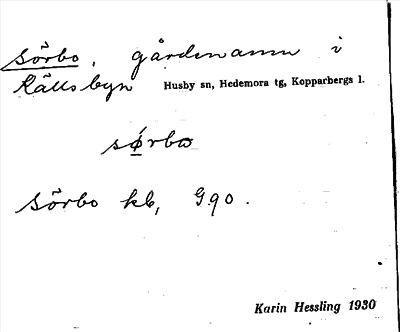 Sörbo, gårdsnamn i
Källsbyn Husby sn, Hedemora tg, Kopparbergs l.
sǿrbω
Sörbo kb, G.90.
Karin Hessling 1930